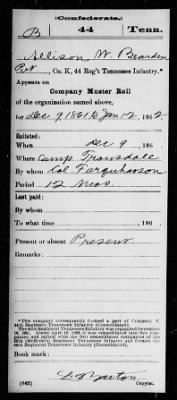 (Confederate.)
B 44 Tenn.
Allison W. Bearden
Pvt, Co. K, 44 Reg't Tennessee Infantry.*
Appears on
Company Muster Roll
of the organization named above,
for Dec 9, 1861 to Jan 12, 1862.
Enlisted:
When Dec 9, 186
Where Camp Trousdale
By whom Col Farquharson
Period 12 mos
Last paid:
By whom
To what time , 186
Present or absent Present
Remarks:
*This company subsequently formed a part of Company
44th Regiment Tennessee Infantry (Consolidated).
Book mark:
(642)
Copyist.